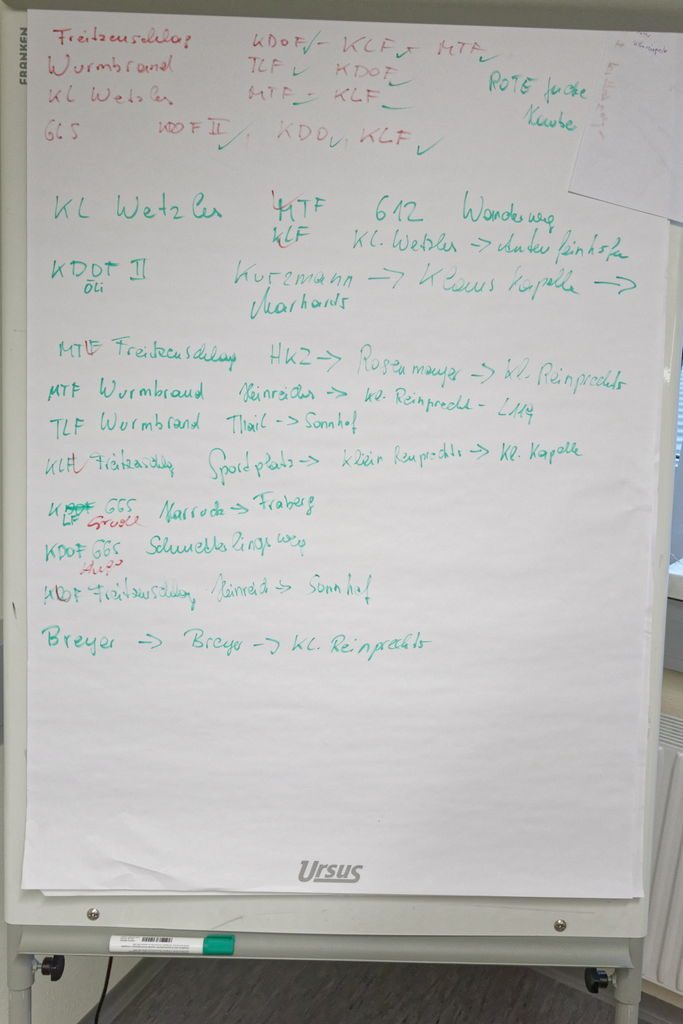 FRANKEN
Freitzenschlag KDOF ✓ - KLF ✓ MTF ✓
Wurmbrand TLF ✓ KDOF ✓
KL Wetzles MTF - KLF
ROTE
GGS KDOF II ✓, KDO ✓, KLF ✓
KL Wetzles MTF 612 Wanderweg
KLF KL. Wetzles →
KDOF II Kurzmann → Klaus Kapelle →
Öli Marhards
MTF Freitzenschlag HKZ → Rosenmayer → Kl. Reinprechts
MTF Wurmbrand Heinrichs → Kl. Reinprecht - L119
TLF Wurmbrand Thail → Sonnhof
KLF Freitzenschlag Sportplatz → Klein Reinprechts → Kl. Kapelle
GGS → Fraberg
LF
KDOF GGS Schmetterlingsweg
KDOF Freitzenschlag Heinreich → Sonnhof
Breyer → Breyer → KL. Reinprechts
Ursus